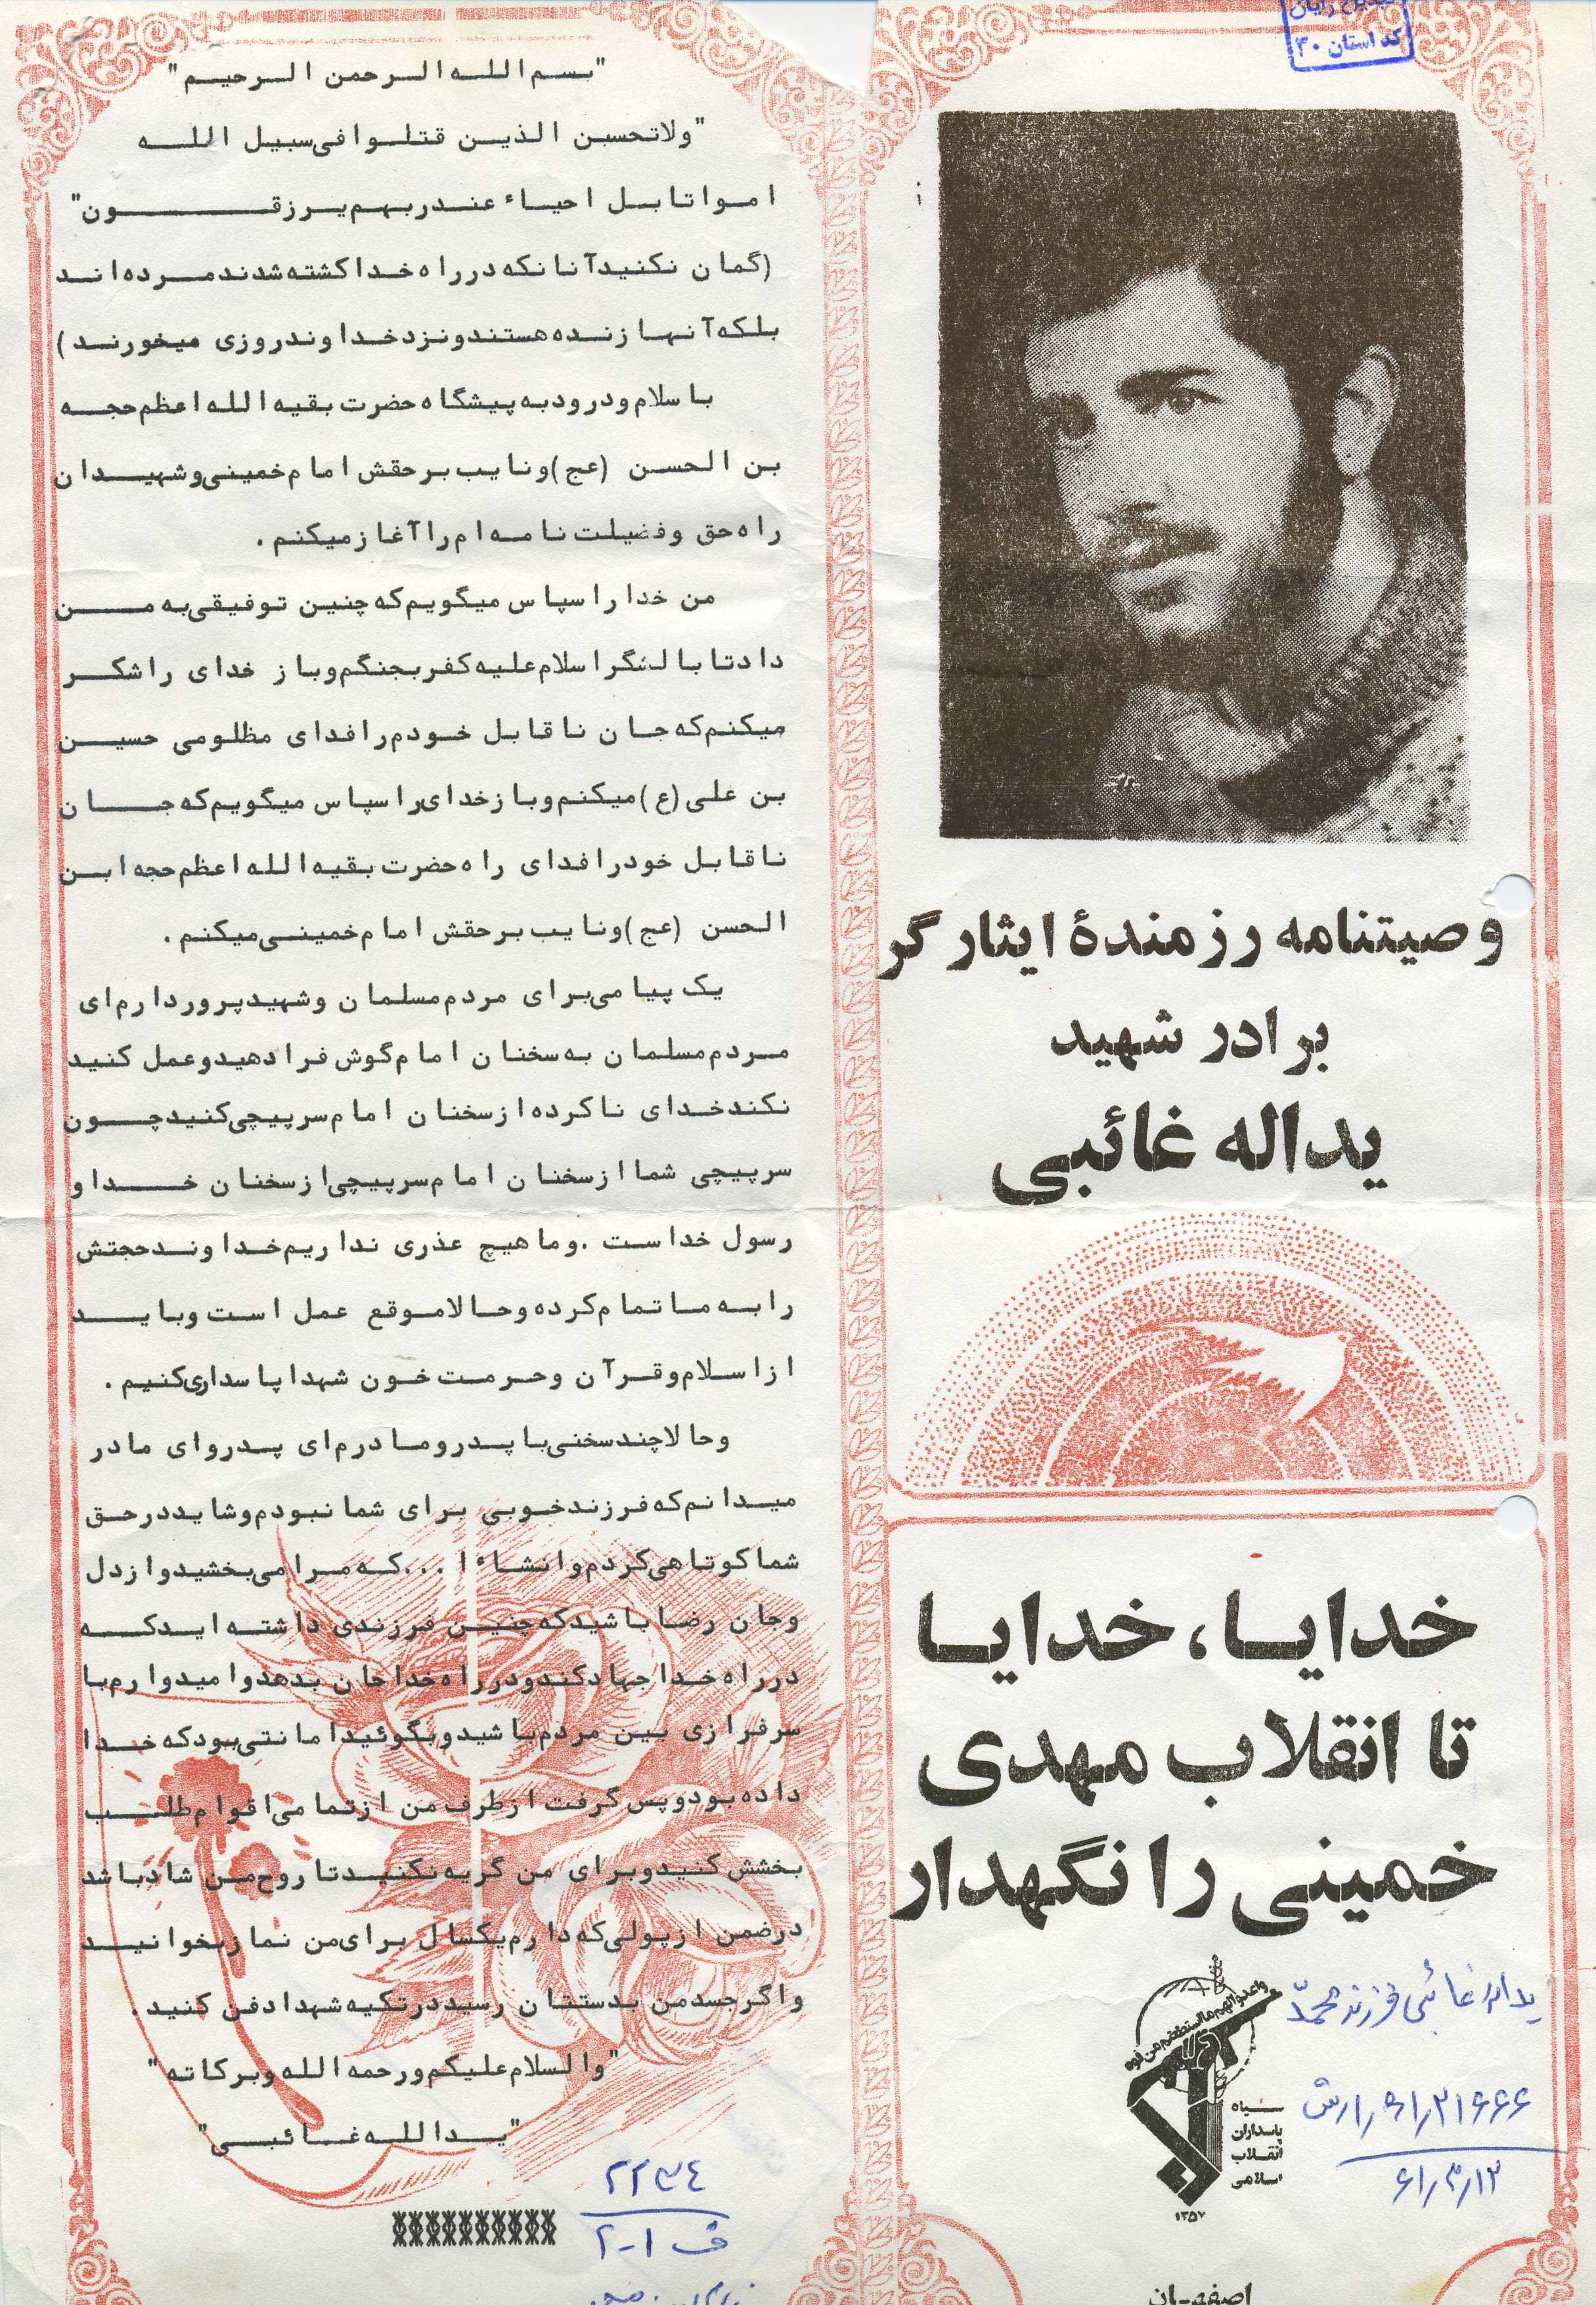 کد استان ۴۰
وصیتنامه رزمندهٔ ایثارگر
برادر شهید
یداله غائبی
خدایا، خدایا
تا انقلاب مهدی
خمینی را نگهدار
یداله غائبی فرزند محمد
سپاه
پاسداران
انقلاب
اسلامی
۱۳۵۷
۶۱/۳/۱۳
اصفهان
"بسم الله الرحمن الرحیم"
"ولاتحسبن الذین قتلوا فی سبیل الله
امواتا بل احیاء عندربهم یرزقون"
(گمان نکنید آنانکه در راه خدا کشته شدند مرده اند
بلکه آنها زنده هستند و نزد خداوند روزی میخورند)
با سلام و درود به پیشگاه حضرت بقیه الله اعظم حجه
بن الحسن (عج) و نایب برحقش امام خمینی و شهیدان
راه حق و فضیلت نامه ام را آغاز میکنم.
من خدا را سپاس میگویم که چنین توفیقی به من
داد تا با لشگر اسلام علیه کفر بجنگم و باز خدای را شکر
میکنم که جان ناقابل خودم را فدای مظلومی حسین
بن علی (ع) میکنم و باز خدای را سپاس میگویم که جان
ناقابل خود را فدای راه حضرت بقیه الله اعظم حجه ابن
الحسن (عج) و نایب برحقش امام خمینی میکنم.
یک پیامی برای مردم مسلمان و شهیدپرور دارم ای
مردم مسلمان به سخنان امام گوش فرا دهید و عمل کنید
نکند خدای ناکرده از سخنان امام سرپیچی کنید چون
سرپیچی شما از سخنان امام سرپیچی از سخنان خدا و
رسول خداست. و ما هیچ عذری نداریم خداوند حجتش
را به ما تمام کرده و حالا موقع عمل است و باید
از اسلام و قرآن و حرمت خون شهدا پاسداری کنیم.
و حالا چند سخنی با پدر و مادرم ای پدر و ای مادر
میدانم که فرزند خوبی برای شما نبودم و شاید در حق
شما کوتاهی کردم و انشاء ا ... که مرا می بخشید و از دل
و جان رضا باشید که چنین فرزندی داشته اید که
در راه خدا جهاد کند و در راه خدا جان بدهد و امیدوارم با
سرفرازی بین مردم باشید و بگوئید امانتی بود که خدا
داده بود و پس گرفت از طرف من از تمامی اقوام طلب
بخشش کنید و برای من گریه نکنید تا روح من شاد باشد
در ضمن از پولی که دارم یکسال برای من نماز بخوانید
و اگر جسد من بدستتان رسید در تکیه شهدا دفن کنید.
"والسلام علیکم و رحمه الله و برکاته"
"یدالله غائبی"
۲۲۳۴